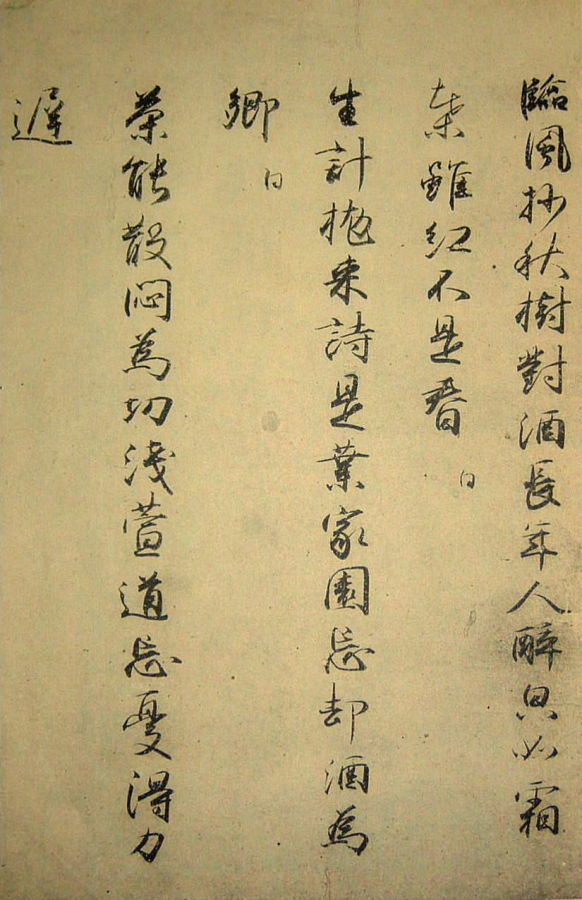 臨風抄秋樹對酒長年人醉皃如霜
葉雖紅不是春 白
生計抛来詩是業家園忘却酒為
鄉 白
茶能散悶為功淺萱道忘憂得力
遲